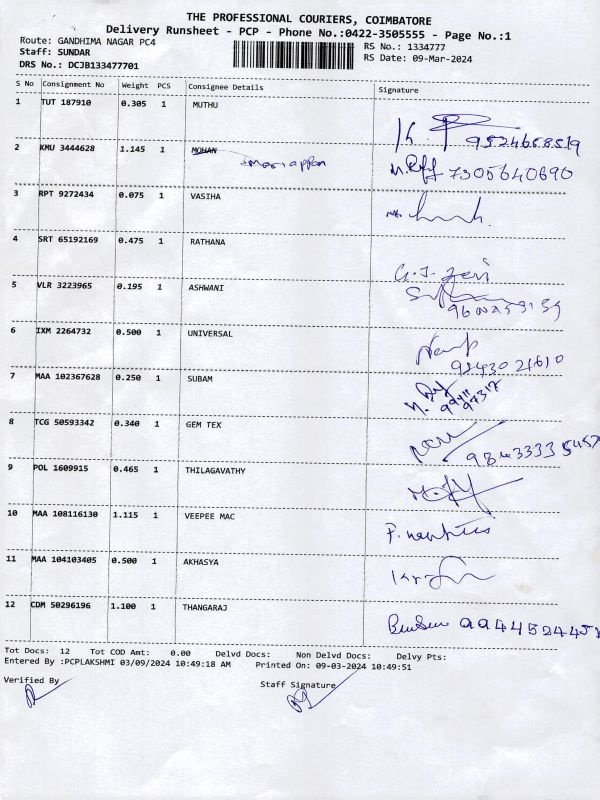 THE PROFESSIONAL COURIERS, COIMBATORE
Delivery Runsheet - PCP - Phone No.:0422-3505555 - Page No.:1
Route: GANDHIMA NAGAR PC4
RS No.: 1334777
Staff: SUNDAR
RS Date: 09-Mar-2024
DRS No.: DCJB133477701
S No Consignment No Weight PCS Consignee Details Signature
1 TUT 187910 0.305 1 MUTHU
9524658519
2 KMU 3444628 1.145 1 MOHAN
mariappan 7305640690
3 RPT 9272434 0.075 1 VASIHA
4 SRT 65192169 0.475 1 RATHANA
5 VLR 3223965 0.195 1 ASHWANI
6 IXM 2264732 0.500 1 UNIVERSAL
9843021610
7 MAA 102367628 0.250 1 SUBAM
8 TCG 50593342 0.340 1 GEM TEX
9 POL 1609915 0.465 1 THILAGAVATHY
10 MAA 108116130 1.115 1 VEEPEE MAC
11 MAA 104103405 0.500 1 AKHASYA
12 CDM 50296196 1.100 1 THANGARAJ
Tot Docs: 12 Tot COD Amt: 0.00 Delvd Docs: Non Delvd Docs: Delvy Pts:
Entered By :PCPLAKSHMI 03/09/2024 10:49:18 AM Printed On: 09-03-2024 10:49:51
Verified By Staff Signature